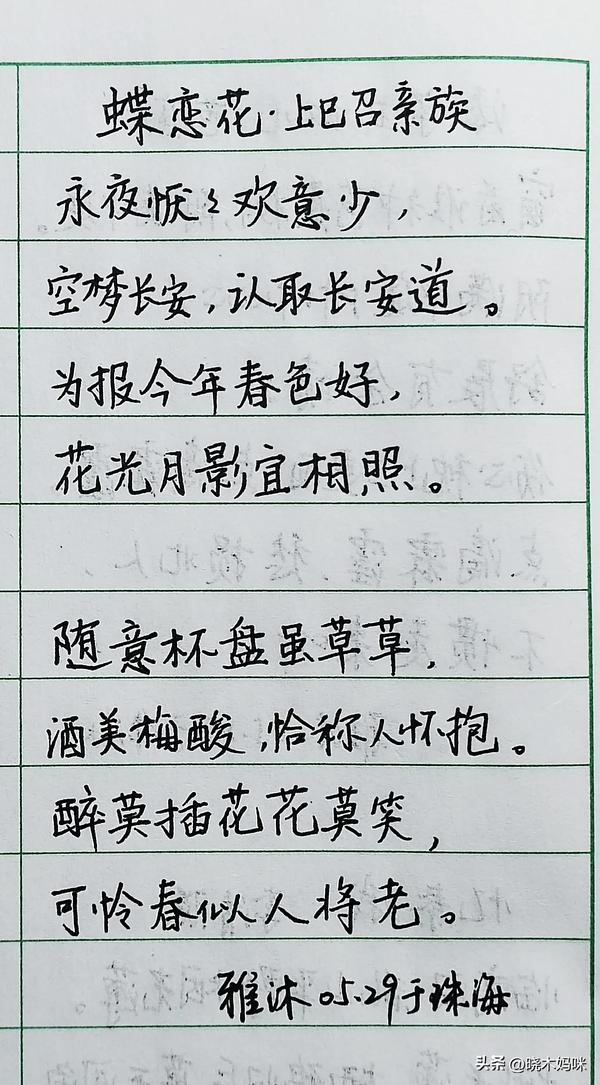 蝶恋花·上巳召亲族
永夜恹々欢意少，
空梦长安，认取长安道。
为报今年春色好，
花光月影宜相照。
随意杯盘虽草草，
酒美梅酸，恰称人怀抱。
醉莫插花花莫笑，
可怜春似人将老。
雅沐 05.29于珠海
头条 @晓木妈咪